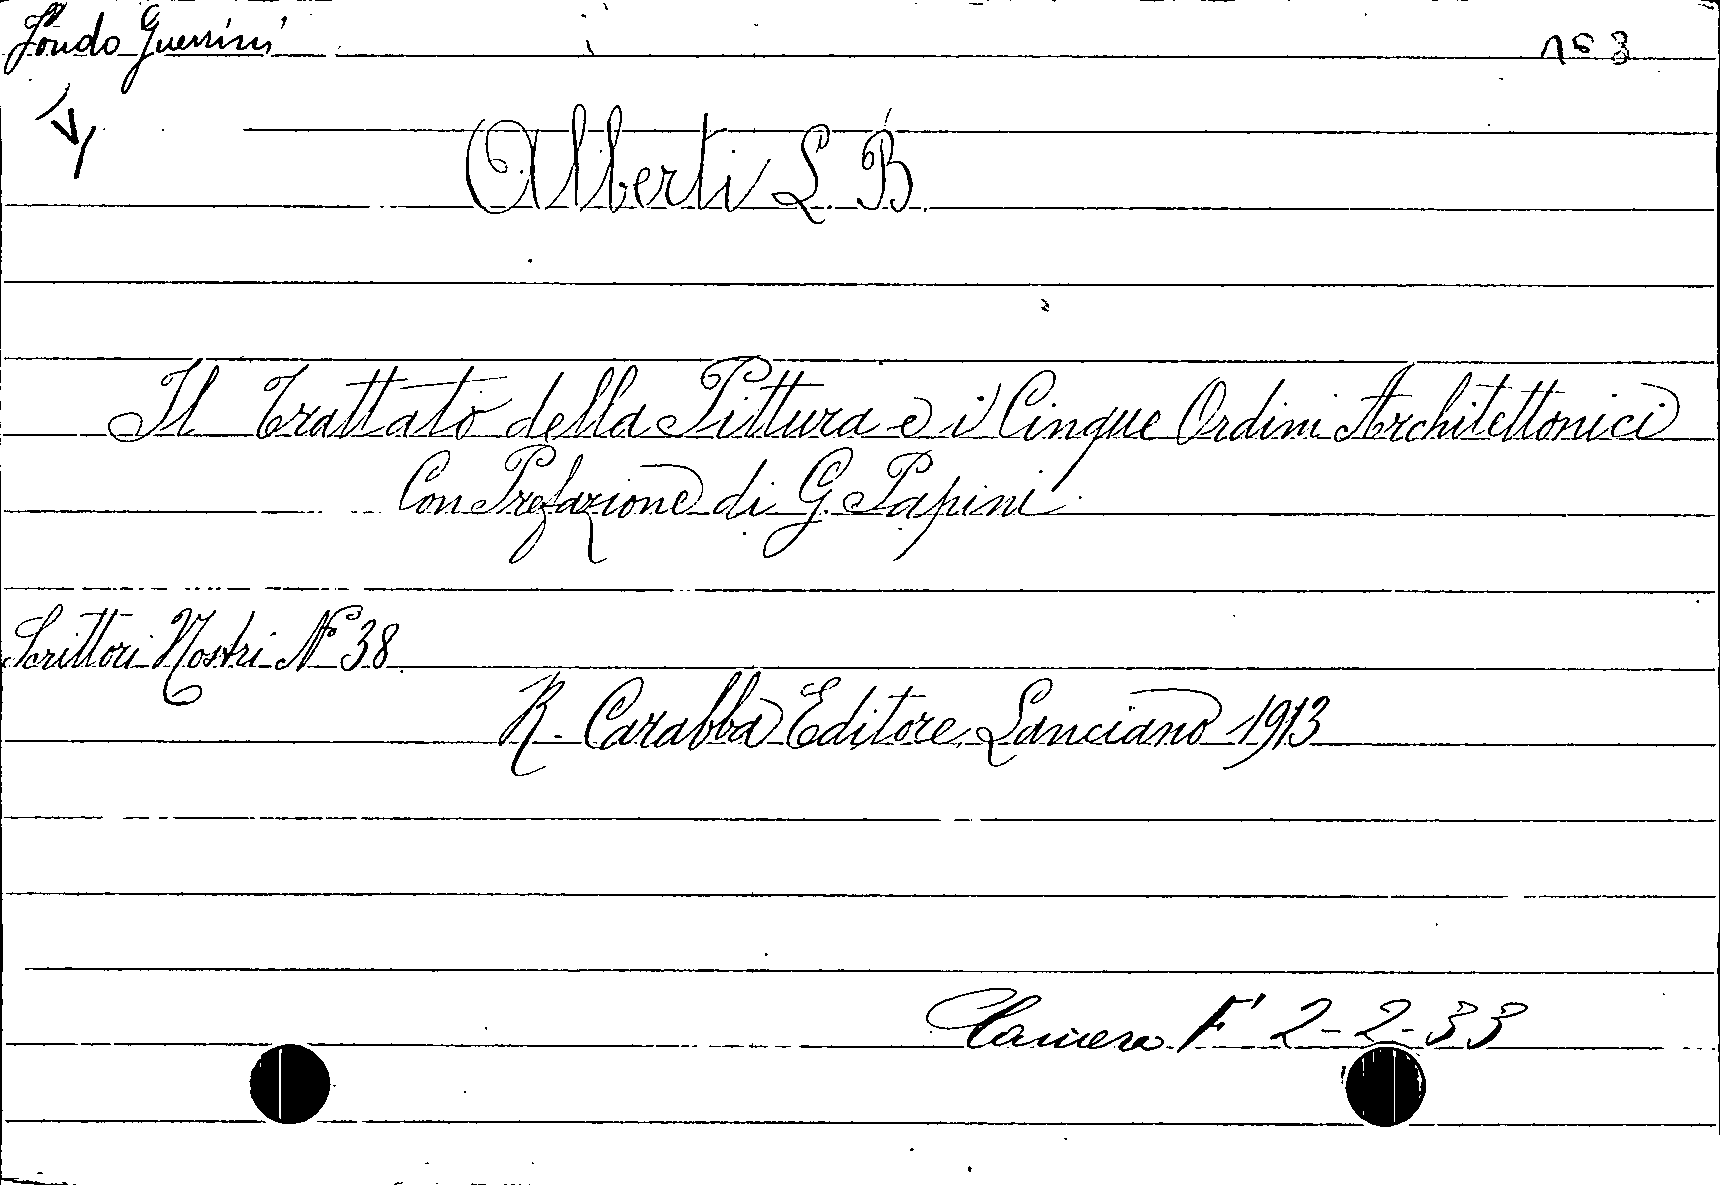 Fondo Guerrini
n° 3
Alberti L. B.
Il Trattato della Pittura e i Cinque Ordini Architettonici
Con Prefazione di G. Papini
Scrittori Nostri N° 38.
R. Carabba Editore Lanciano 1913
Camera F 2-2-33